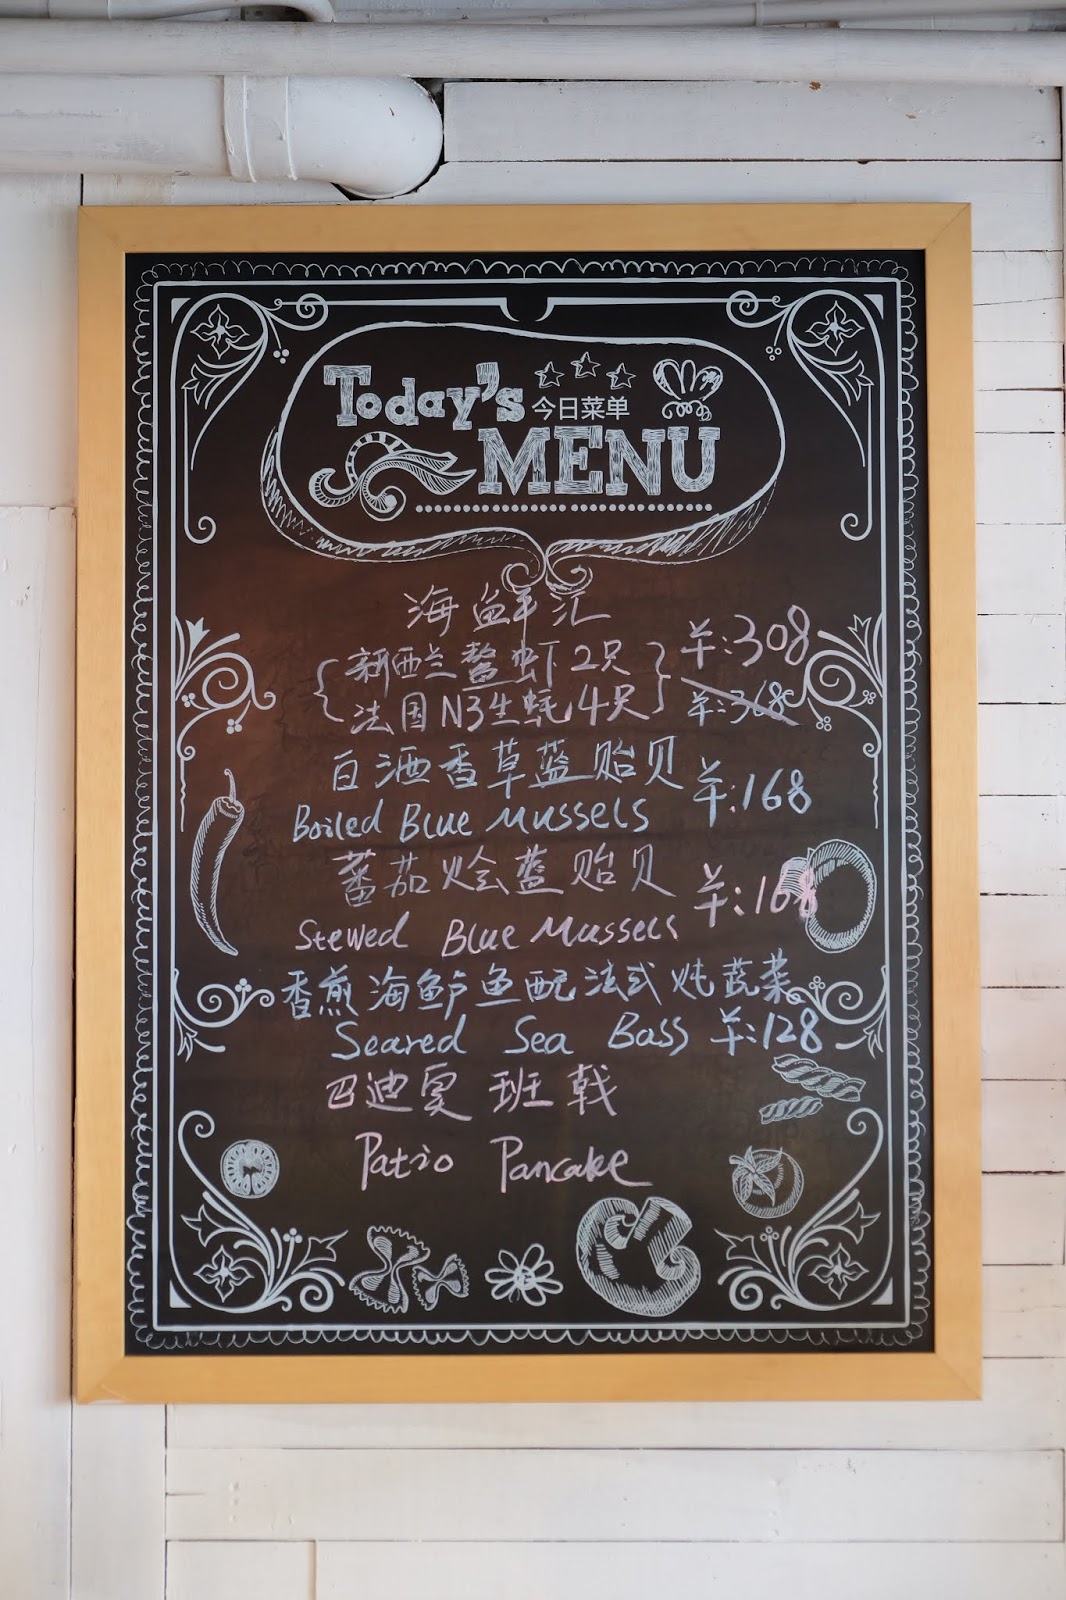 Today's
今日菜单
MENU
海鲜汇
{新西兰鳌虾 2只} 羊:308
{法国N3生蚝4只} 羊:368
白酒香草蓝贻贝
Boiled Blue Mussels 羊:168
蕃茄烩蓝贻贝
Stewed Blue Mussels 羊:168
香煎海鲈鱼配法式炖蔬菜
Seared Sea Bass 羊:128
巴迪奥班戟
Patio Pancake